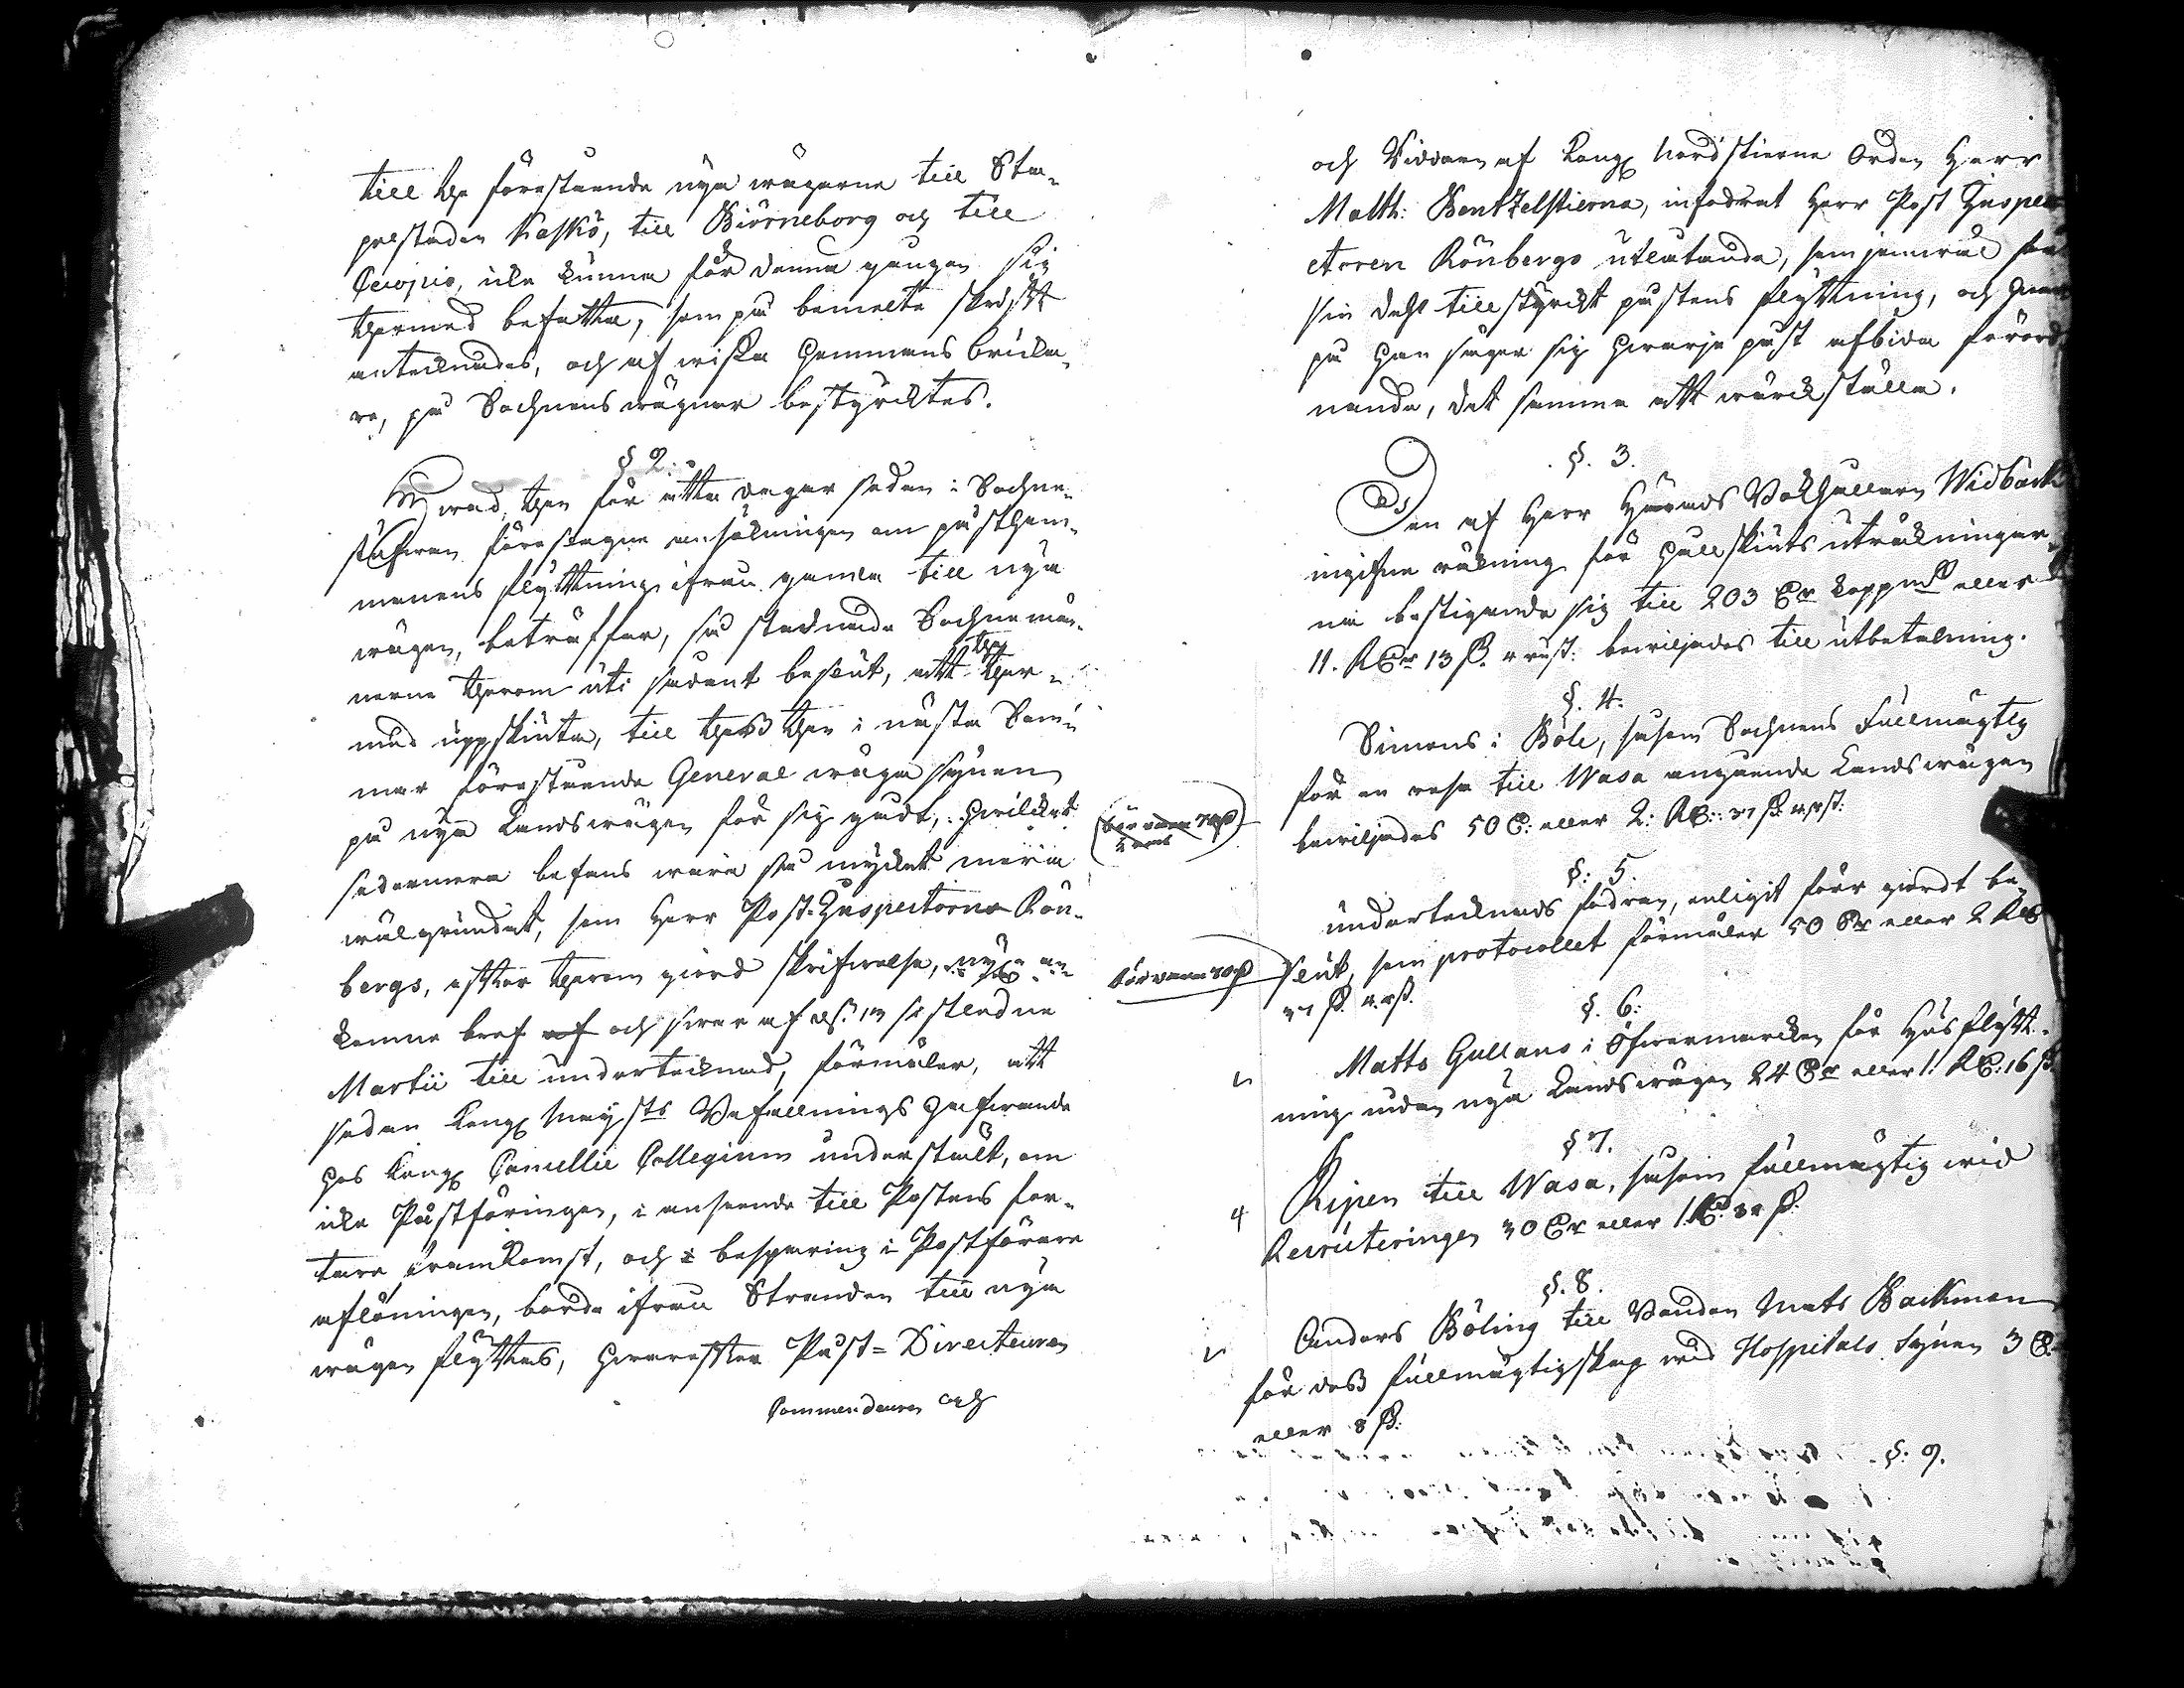 till the förestående nya wägarne till Sta-
pelstaden Kaskö, till Biörneborg och till
Cuopio, icke kunna för denna gången sig
thermed befatta, som på bemelte skrift
antecknades, och af wissa Hemmans bruka-
re, på Sochnens wägnar bestyrcktes.
§ 2.
Hwad then för åtta dagar sedan i Sochne-
stufwan föreslagne ansökningen om påsthem-
manens flyttning ifrån gamla till nya
wägen, beträffar, så stadnade Sochnemän-
nerne therom uti sådant beslut, att ther-
med uppskiuta, till thess then i nästa Som-
mar förestående General wäga synen
på nya Landswägen för sig gådt, hwilcket
sedermera befans wara så mycket mera
wälgrundat, som Herr Post-Inspectorns Rön-
bergs, efter therom giord skrifwelse, nyss an-
komne bref och swar af d. 13 sistledne
Martii till undertecknad, förmäler, att
sedan Kongl. Maysts Befallningshafwande
hos Kongl. Cancellie Collegium understält, om
icke Påstföringen, i anseende till Postens for-
tare framkomst, och besparing i Postförare
aflöningen, borde ifrån Stranden till nya
wägen flyttas, hwarefter Påst-Directeuren
Commendeuren och
och Riddaren af Kongl. Nordstierne Orden Herr
Matth: Bentzelstierna, infodrat Herr Post Inspe-
ctoren Rönbergs utlåtande, som jemwäl för
sin dehl tillstyrckt påstens flyttning, och hwar-
på han säger sig hwarje påst afbida förord-
nande, det samma att wärckställa.
§. 3.
Den af Herr Härads Bokhållaren Widbäck
ingifne räkning för hållskiuts uträkningar-
ne bestigande sig till 203 Dr koppmt eller
11. RDr 13 ß. 4 rst: bewiljades till utbetalning.
§. 4.
Simons i Böle, såsom Sochnens Fullmägtig
för en resa till Wasa angående Landswägen
(bör wara 70 D
bewiljades 50 D: eller 2: RD: 37 ß 4 rst:
§: 5.
undertecknads fodran, enligit förr giordt be-
bör wara 70 D
slut, som protocollet förmäler 50 Dr eller 2 RD
37 ß. 4 rst.
§. 6:
Matts Gullans i Öfwermarcken för Husflytt-
ning inden nya Landswägen 24 Dr eller 1: RD: 16 ß.
§ 7.
Ripen till Wasa, såsom fullmägtig wid
Recruteringen 30 Dr eller 1. RD: 32 ß.
§. 8.
Anders Böling till Bonden Mats Backman
för dess fullmägtigskap wid Hospitals synen 3 D:
eller 8 ß:
§: 9.